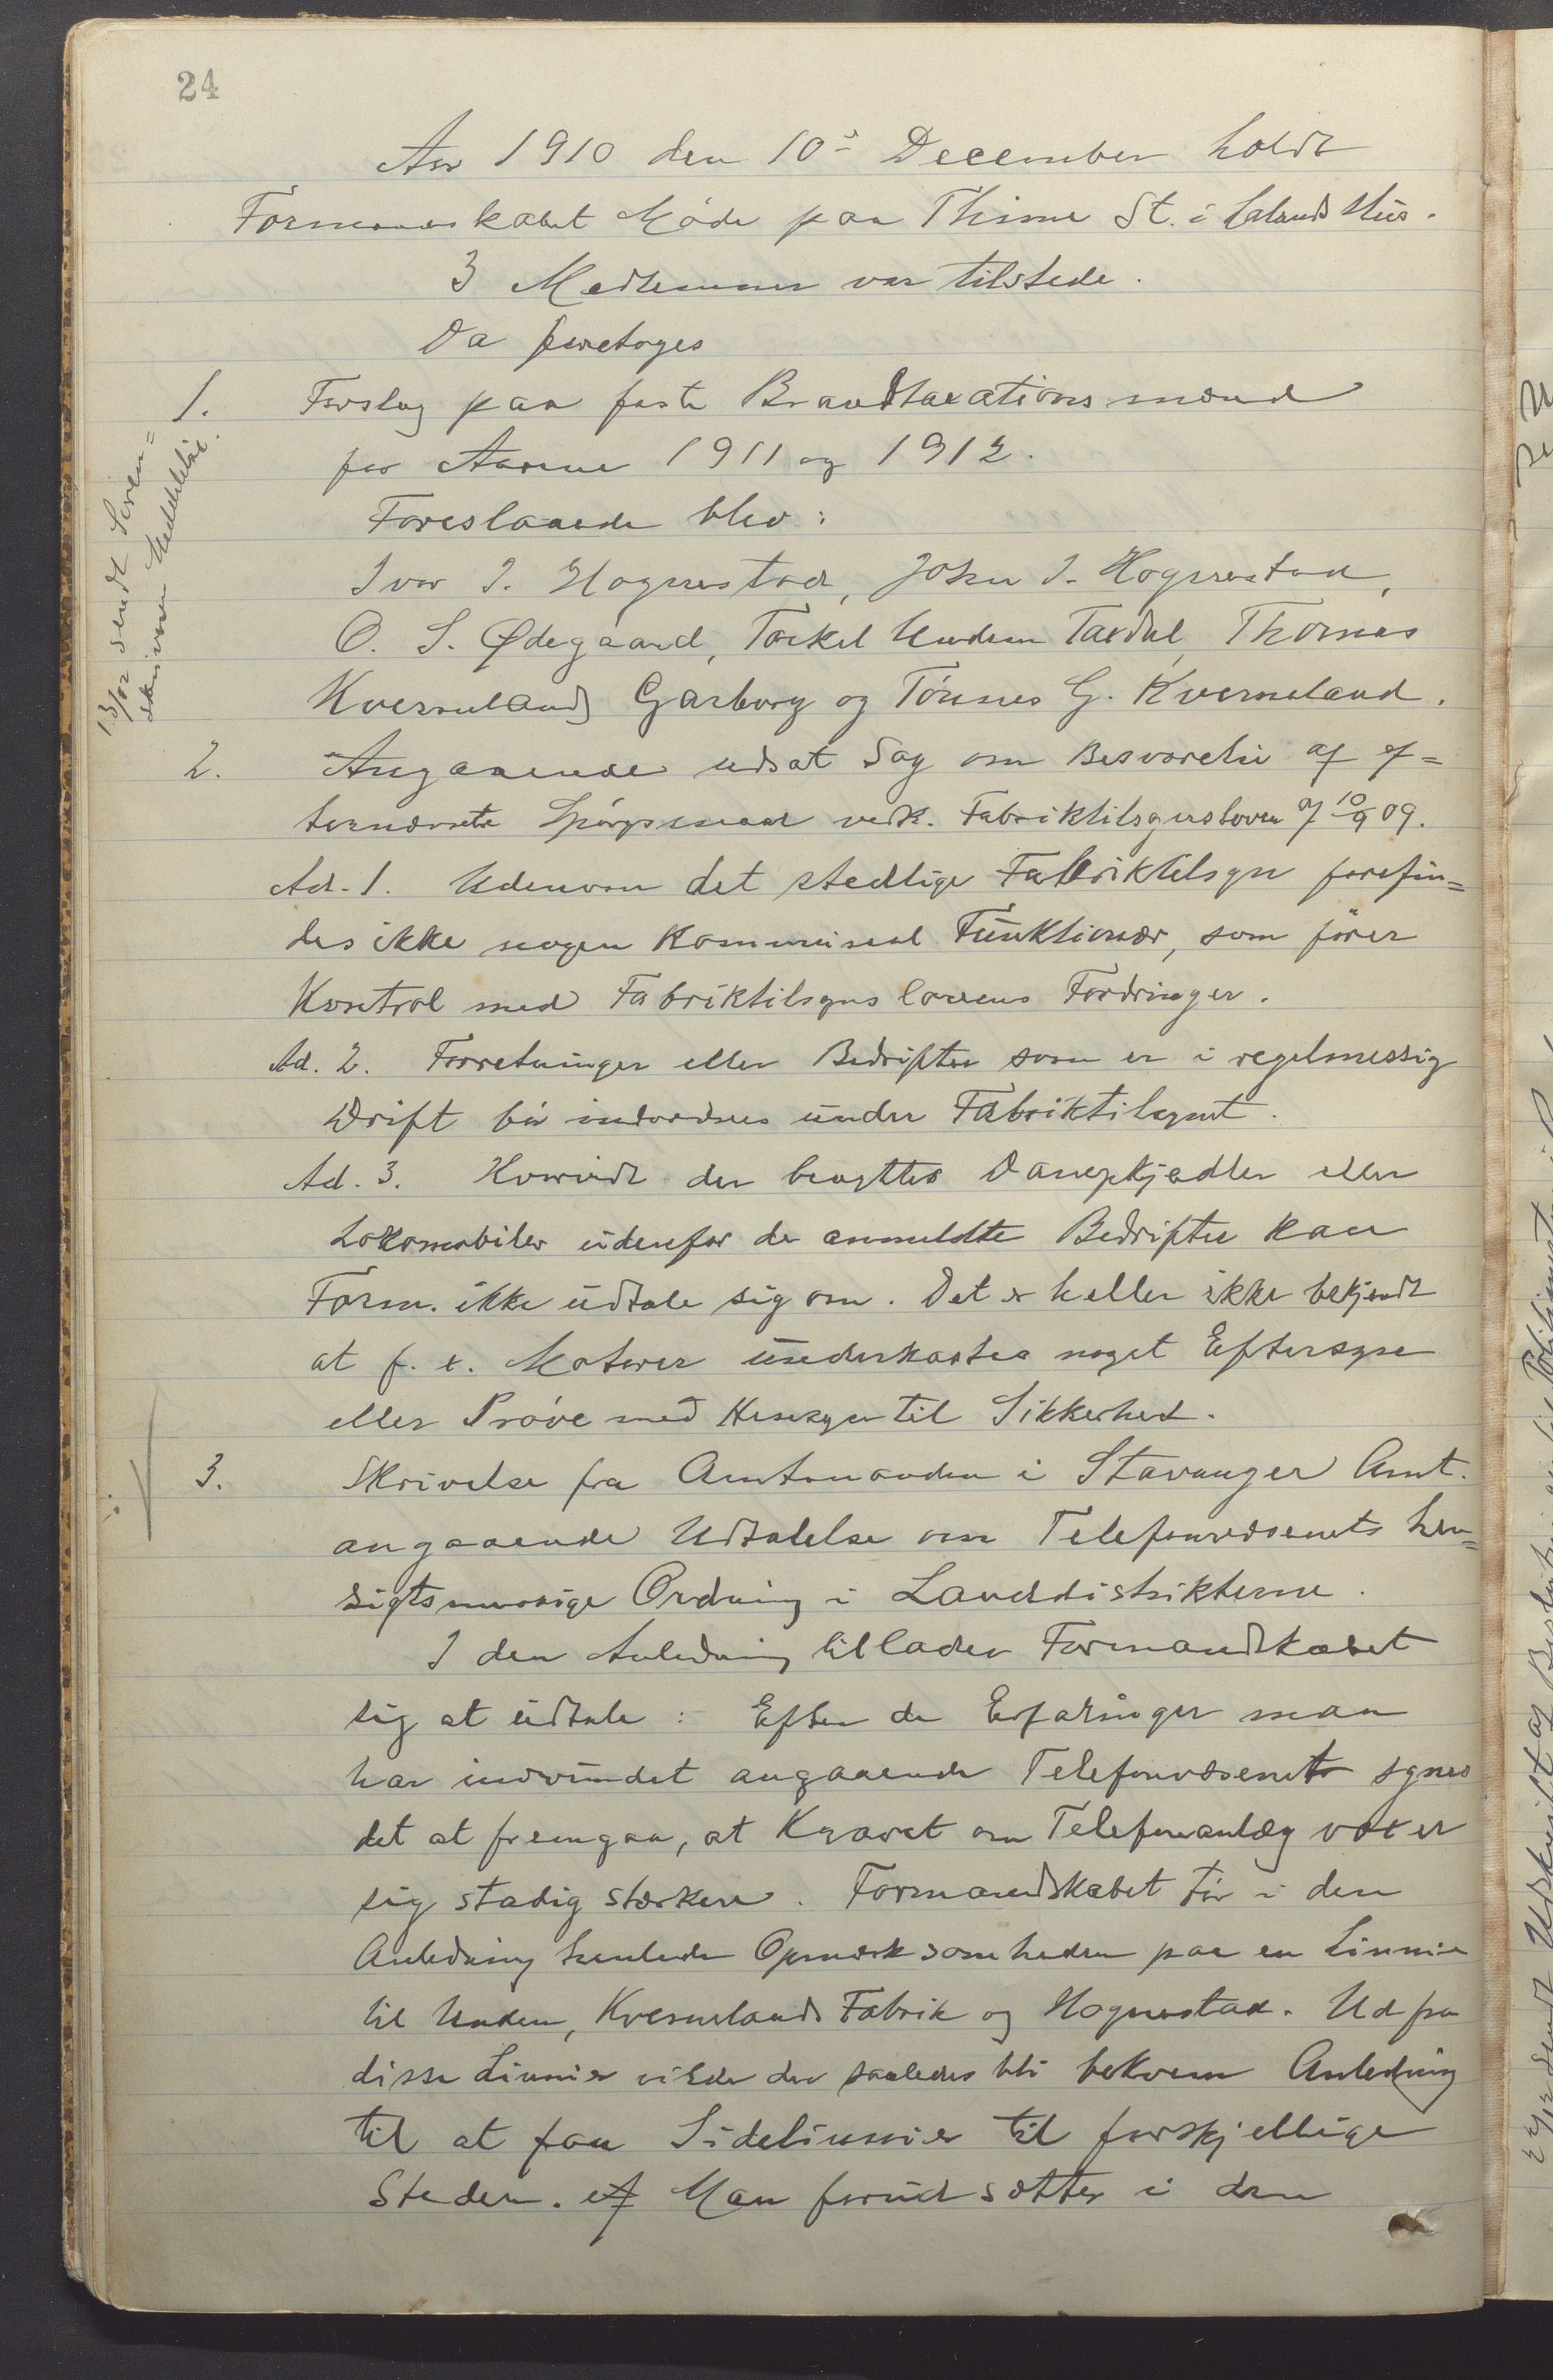 24
Aar 1910 den 10de December holdt
Formandskabet Møde paa Thime St. i Hus.
3 Medlemmer var tilstede.
Da foretoges
1. Forslag paa faste Brandtaxationsmænd
for Aarene 1911 og 1912.
Foreslaaede blev:
Ivar I. Hognestad, John I. Hognestad,
O. S. Ødegaard, Torkel Undem Taxdal, Thomas
Kverneland, Garborg og Tönnes G. Kverneland.
13/12 sendt Soren=
skriveren Meddelelse.
2. Angaaende udsat Sag om Besvarelse af ef=
ternævnte Spörgsmaal vedk. Fabriktilsynsloven af 10/9 09.
Ad. 1. Udenom det stedlige Fabriktilsyn forefin=
des ikke nogen Kommunal Funktionær, som förer
Kontrol med Fabriktilsyns lovens Fordringer.
Ad. 2. Forretninger eller Bedrifter som er i regelmessig
Drift bör indordnes under Fabriktilsynet.
Ad. 3. Hvorvidt der benyttes Dampkjedler eller
Lokomobiler udenfor de anmeldte Bedrifter kan
Form. ikke udtale sig om. Det er heller ikke bekjendt
at f. x. Motorer underkastes noget Eftersyn
eller Pröve med Hensyn til Sikkerhed.
3. Skrivelse fra Amtmanden i Stavanger Amt.
angaaende Udtalelse om Telefonvæsenets hen=
sigtsmæssige Ordning i Landdistrikterne.
I den Anledning tillader Formandskabet
sig at udtale: Efter de Erfaringer man
har indvundet angaaende Telefonvæsenet synes
det at fremgaa, at Kravet om Telefonanlæg voxer
sig stadig stærkere. Formandskabet tör i den
Anledning henlede Opmærksomheden paa en Linnie
til Undem, Kvernelands Fabrik og Hognestad. Ud fra
disse Linnier vilde der saaledes bli bekvem Anledning
til at faa Sidelinnier til forskjellige
Steder. Man forudsætter i den